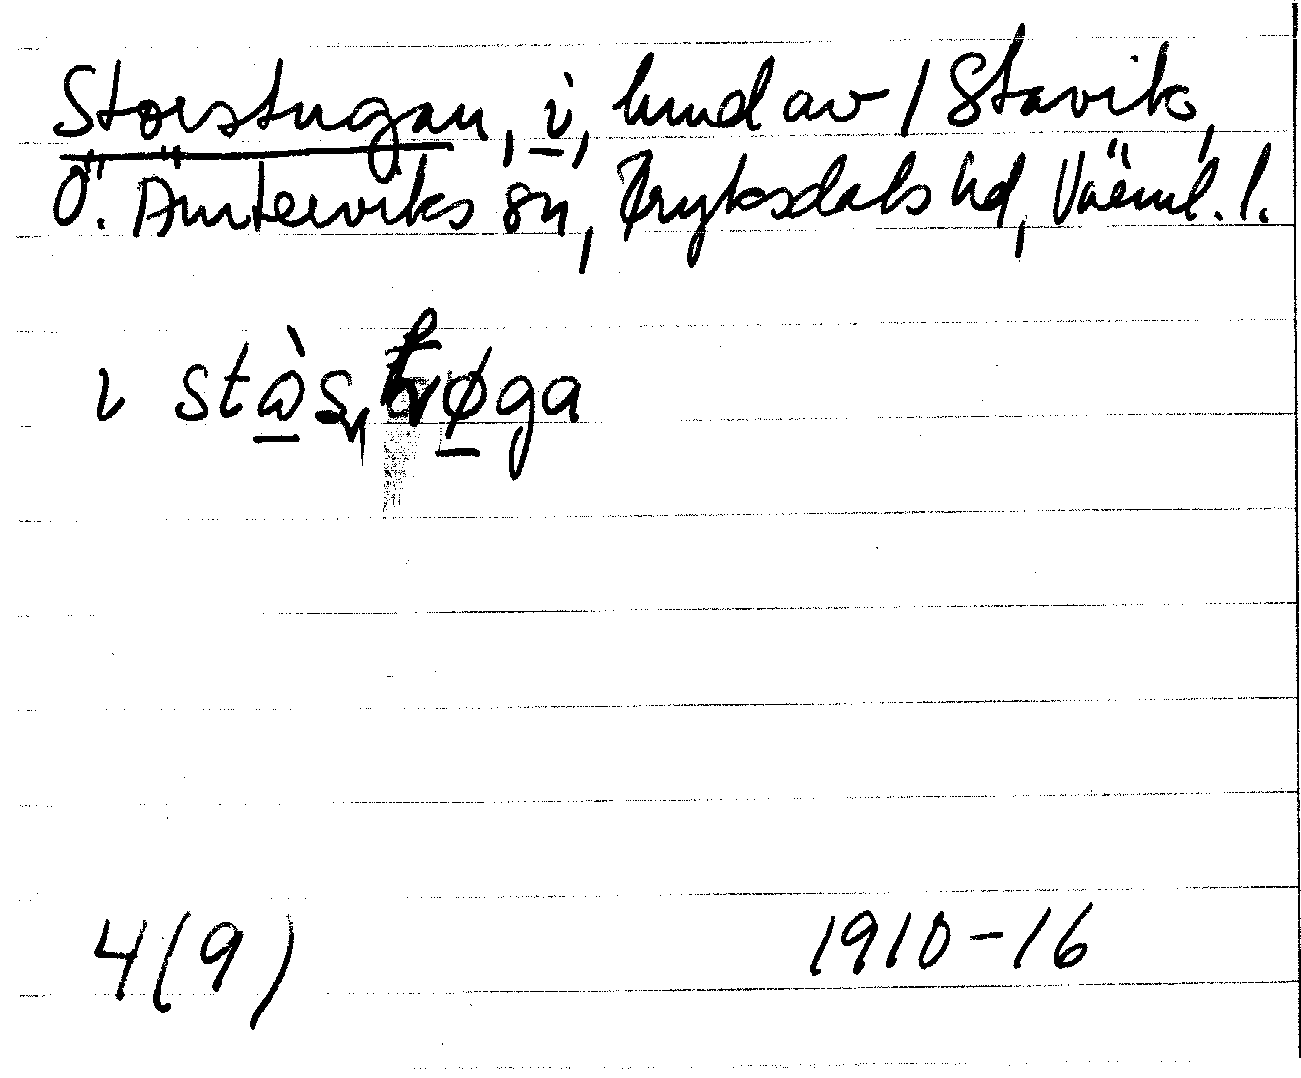 Storstugan, i, hmd av / Stavik,
Ö. Ämterviks sn, Fryksdals hd, Värml. l.
4(9)
1910-16